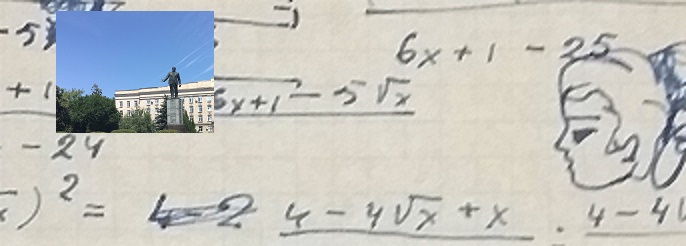 -5
6x + 1 - 25
+ 1 6x+1 - 5√x
- 24
)² = 4-2 4 - 4√x + x . 4 - 4√